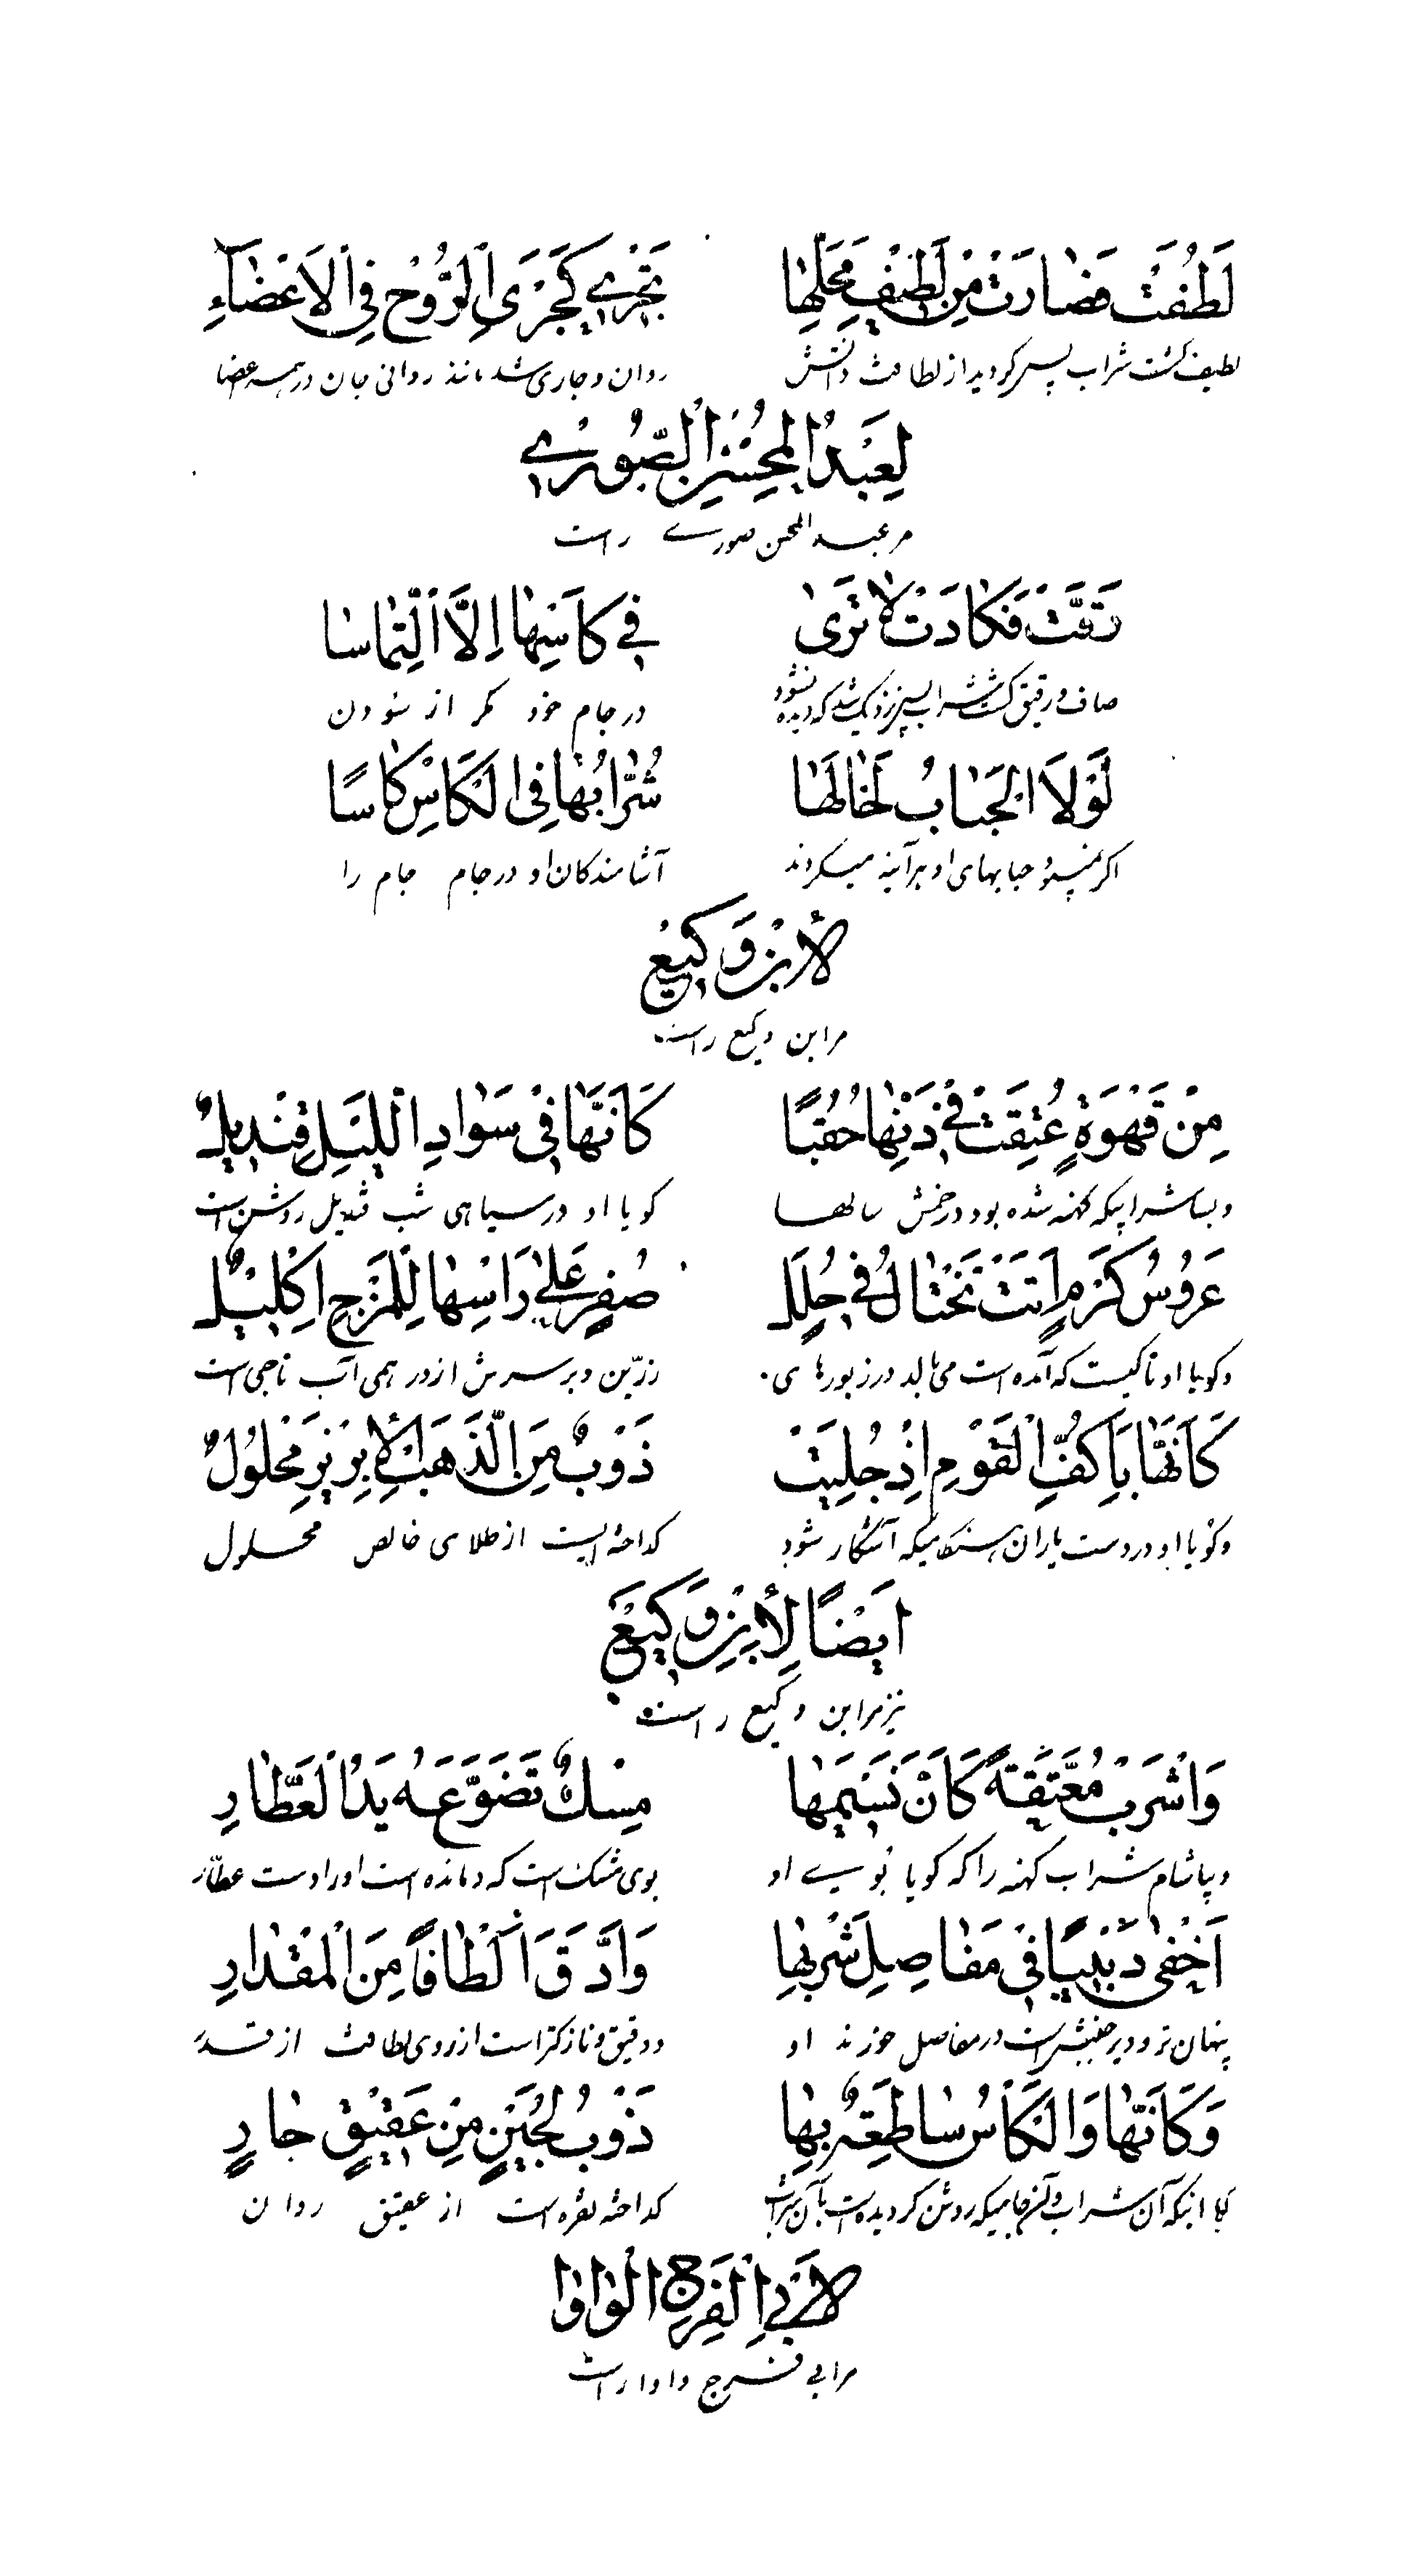 لَطُفَتْ فَصَارَتْ مِنْ لَطِيْفِ مَحَلِّهَا تَجْرِي كَجَرْيِ الرُّوْحِ فِي الْاَعْضَاءِ
لطیف گشت شراب پس گردید از لطافت روان و جاری شد مانند روانی جان در همه اعضا
لِعَبْدِ الْمُحْسِنِ الصُّوْرِي
مر عبد المحسن صوری راست
رَقَّتْ فَكَادَتْ لَا تَرَى فِي كَاسِهَا اِلَّا الْتِمَاسَا
صاف و رقیق گشت شراب پس نزدیک شد که دیده نشود در جام خود مگر از سودن
لَوْلَا الْحَبَابُ لَخَالَهَا شُرَّابُهَا فِي الْكَاسِ كَاسًا
اگر نمیبود حبابهای او هر آینه میکردند آشامندگان او در جام جام را
لِاُبْنِ وَكِيْعٍ
مر ابن وکیع راست
مِنْ قَهْوَةٍ عُتِقَتْ فِي دَنِّهَا حُقُبًا كَاَنَّهَا فِي سَوَادِ اللَّيْلِ قِنْدِيْلٌ
و بسا شرابیکه کهنه شده بود در خمش سالها گویا او در سیاهی شب قندیل روشن است
عَرُوْسُ كَرْمٍ اَتَتْ تَخْتَالُ فِي حُلَلٍ صُفْرٍ عَلَى رَاسِهَا لِلْمَزْجِ اِكْلِيْلٌ
و گویا او تاکیست که آمده است می‌بالد در زیورهای زرّین و بر سرش از درهمی آب تاجی است
كَاَنَّهَا بِاَكُفِّ الْقَوْمِ اِذْ جُلِيَتْ ذَوْبٌ مِنَ الذَّهَبِ الْاِبْرِيْزِ مَحْلُوْلٌ
و گویا او در دست یاران هنگامیکه آشکار شود گداخته ایست از طلای خالص محلول
اَيْضًا لِاُبْنِ وَكِيْعٍ
نیز مر ابن وکیع راست
وَاشْرَبْ مُعَتَّقَةً كَاَنَّ نَسِيْمَهَا مِسْكٌ تَضَوَّعَهُ يَدُ الْعَطَّارِ
و بیاشام شراب کهنه را که گویا بوی او بوی مشک است که دمانده است او را دست عطّار
اَخْفَى دَبِيْبًا فِي مَفَاصِلِ شَرْبِهَا وَاَدَّقَ اَلْطَافًا مِنَ الْمِقْدَارِ
پنهان تر و دیر جنبشتر است در مفاصل خورند او و دقیق و نازکتر است از روی لطافت از قدر
وَكَاَنَّهَا وَالْكَاْسُ سَاطِعَةٌ بِهَا ذَوْبُ لُجَيْنٍ مِنْ عَقِيْقٍ جَارٍ
آن شراب جامیکه روشن گردیده است بآن شراب گداخته نقره است از عقیق روان
لِاَبِي الْفَرَجِ الْوَاوَا
مر ابی فرج واوا راست